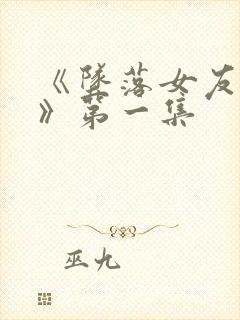 《墜落女友
》第一集
巫九